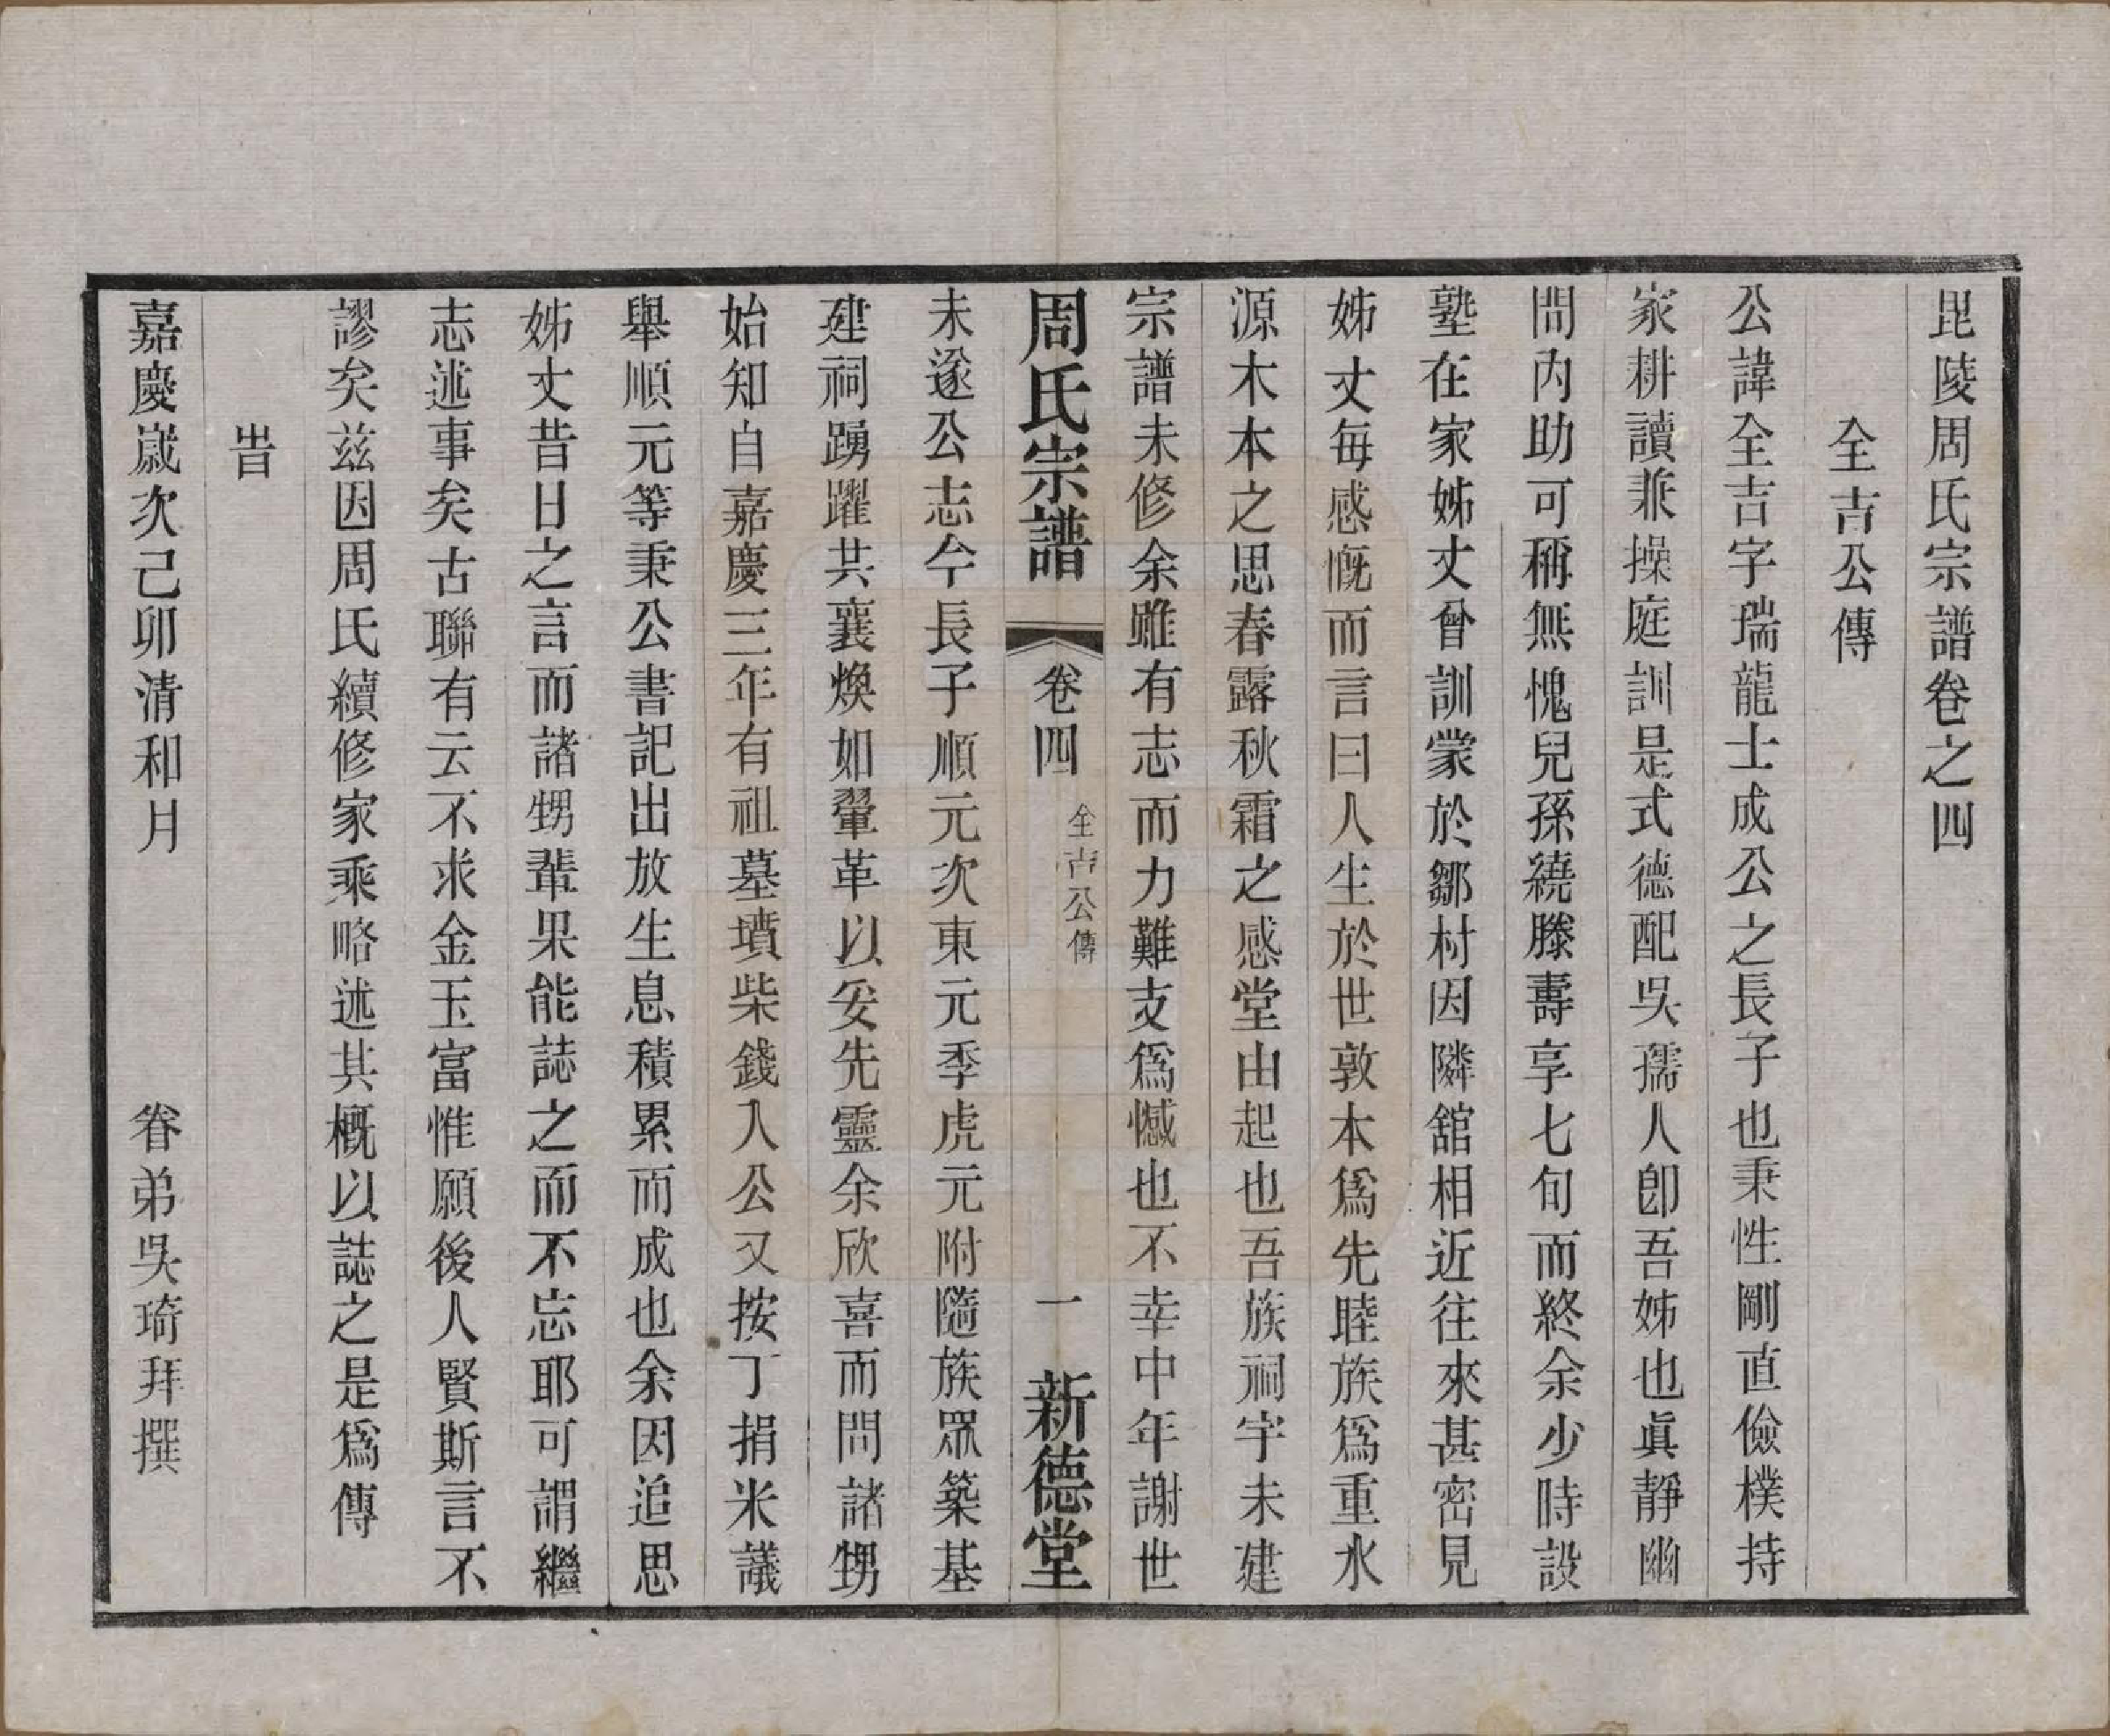 毘陵周氏宗譜卷之四
全吉公傳
公諱全吉字瑞龍士成公之長子也秉性剛直儉樸持
家耕讀兼操庭訓是式德配吳孺人卽吾姊也眞靜幽
閒內助可稱無愧兒孫繞膝壽享七旬而終余少時設
塾在家姊丈曾訓蒙於鄒村因隣舘相近往來甚密見
姊丈每感慨而言曰人生於世敦本爲先睦族爲重水
源木本之思春露秋霜之感堂由起也吾族祠宇未建
宗譜未修余雖有志而力難支爲憾也不幸中年謝世
周氏宗譜 卷四 全吉公傳 一 新德堂
未遂公志今長子順元次東元季虎元附隨族眾築基
建祠踴躍共襄煥如翬革以妥先靈余欣喜而問諸甥
始知自嘉慶三年有祖墓墳柴錢人公又按丁捐米議
舉順元等秉公書記出放生息積累而成也余因追思
姊丈昔日之言而諸甥輩果能誌之而不忘耶可謂繼
志述事矣古聯有云不求金玉富惟願後人賢斯言不
謬矣茲因周氏續修家乘略述其概以誌之是爲傳
旹
嘉慶歲次己卯清和月 眷弟吳琦拜撰